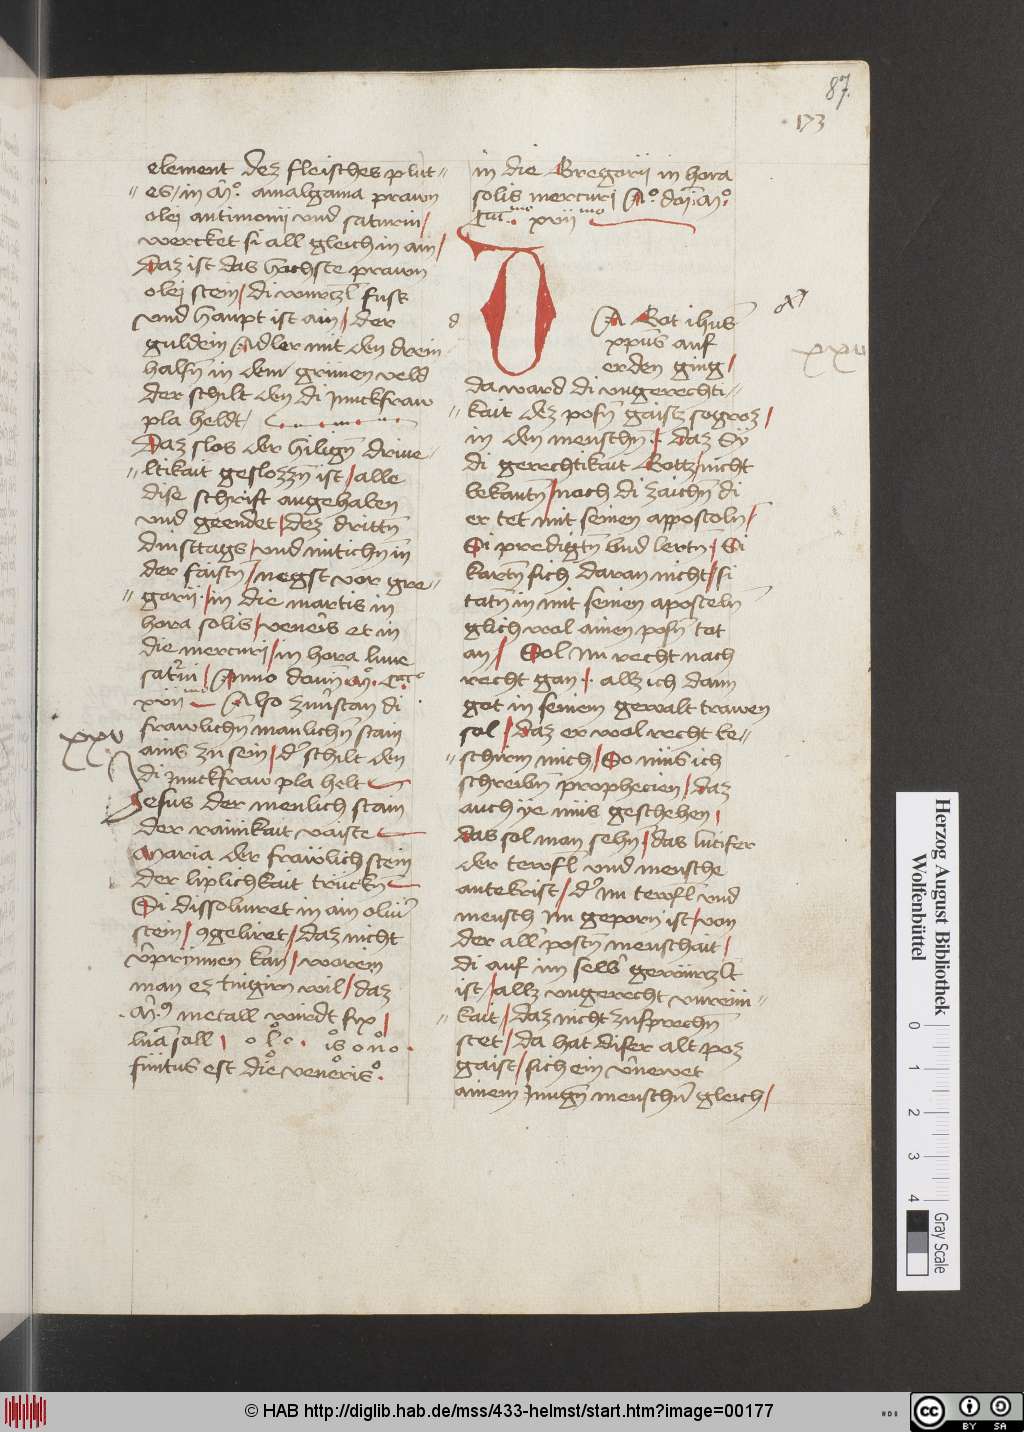 87
173
element dez fleisches plut=
es / in mo. amalgama prawn
olej antimonij vnd saturin /
wercket si all gleich in ain /
Daz ist das hochste prawn
olej stein / di wurtzl fusk
vnd haupt ist ain / der
guldein Adler mit den drein
halsn in dem grunen veld
der schilt den di Junckfraw
pla heldt /
Daz slos der hilign driue=
ltikait geslozzn ist / alle
dise schrift angehaben
vnd geendet / dez drittn
dinsttags / vnd miticħn in
der faistn / negst vor gre=
gorij / in die martis in
hora solis / veneris et in
die mercurij / in hora lune
saturni / Anno domi mo. cccco
xvii mo Also zuuerstan di
frawlichn manlichn stain
ains zu sein / der schilt den
di Junckfraw pla helt
Jesus der menlich stain
der rainikait vaiste
Maria der frawlich stein
der liplichkait truckn
Di dissoluiret in ain oluir
stein / 9geliret / daz nicht
verprinnen kan / warein
man ez tingirn wil / daz
metall wirdt fix /
luna soll / o l o . is o n o .
finitus est die veneris.
xxv
in die Gregorij in hora
solis mercurj Ao. domi. mo.
cccc mo xvii mo
d
DA Got ihus
xpus auf
erden ging /
da ward di vngerechti=
kait dez posn gaistz sogroz /
in den menschn / daz Sy
di gerechtikait Gottz / nicht
bekantn / noch di zaichn di
er tet mit seinen appostoln /
Si predigtn vnd lertn / Si
kartn sich daran nicht / si
tatn in mit seinen aposteln
glich wol ainen posn tot
an / Sol im recht nach
recht gan / allz ich dann
got in seinem gewalt trawen
sol / daz er wol recht be=
schirm mich / So mus ich
schreibn prophecien / daz
auch ye mus geschehen /
das sol man sehn / das lucifer
der tewfl vnd mensche
antekrist / der im tewfl vnd
mensch im geporn ist / von
der all postn menschait /
di auf im selbs gewurtzlt
ist / allz vngerecht vnrein=
kait / daz nicht zusprechn
stet / da hat diser alt poz
gaist / sich ein vernewet
ainem Jungn menschn gleich /
xxv
Herzog August Bibliothek
Wolfenbüttel
0 1 2 3 4
Gray Scale
© HAB http://diglib.hab.de/mss/433-helmst/start.htm?image=00177
HAB
cc BY SA